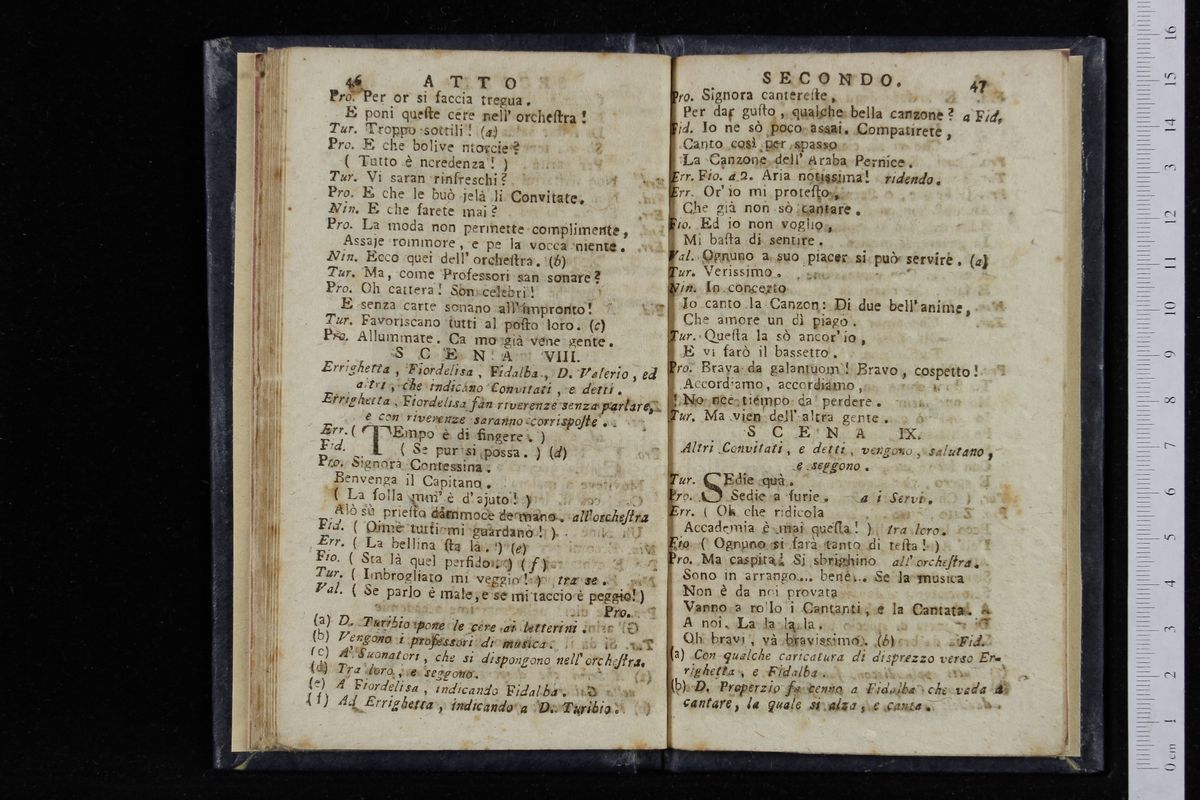 46 ATTO
Pro. Per or si faccia tregua.
E poni queſte cere nell' orcheſtra!
Tur. Troppo sottili! (a)
Pro. E che bolive ntorcie?
( Tutto è ncredenza! )
Tur. Vi saran rinfreschi?
Pro. E che le buò jelà li Convitate.
Nin. E che farete mai?
Pro. La moda non permette complimente,
Assaje rommore, e pe la vocca niente.
Nin. Ecco quei dell' orcheſtra. (b)
Tur. Ma, come Professori san sonare?
Pro. Oh cattera! Son celebri!
E senza carte sonano all'impronto!
Tur. Favoriscano tutti al poſto loro. (c)
Pro. Allummate. Ca mo già vene gente.
SCENA VIII.
Errighetta, Fiordelisa, Fidalba, D. Valerio, ed
altri, che indicano Convitati, e detti.
Errighetta, Fiordelisa fan riverenze senza parlare,
e con riverenze saranno corrisposte.
Err. ( TEmpo è di fingere. )
Fid. ( Se pur si possa. ) (d)
Pro. Signora Contessina.
Benvenga il Capitano.
( La folla mm' è d'ajuto! )
Alò sù prieſto dammoce de mano. all'orcheſtra
Fid. ( Oimè tutti mi guardano! )
Err. ( La bellina ſta là. ) (e)
Fio. ( Sta là quel perfido. ) (f)
Tur. ( Imbrogliato mi veggio! ) tra se.
Val. ( Se parlo è male, e se mi taccio è peggio!)
Pro.
(a) D. Turibio pone le cere ai letterini.
(b) Vengono i professori di musica.
(c) A' Suonatori, che si dispongono nell'orcheſtra.
(d) Tra loro, e seggono.
(e) A Fiordelisa, indicando Fidalba.
(f) Ad Errighetta, indicando a D. Turibio.
SECONDO. 47
Pro. Signora cantereſte,
Per dar guſto, qualche bella canzone? a Fid.
Fid. Io ne sò poco assai. Compatirete,
Canto così per spasso
La Canzone dell' Araba Pernice.
Err. Fio. a 2. Aria notissima! ridendo.
Err. Or' io mi proteſto,
Che già non sò cantare.
Fio. Ed io non voglio,
Mi baſta di sentire.
Val. Ognuno a suo piacer si può servire. (a)
Tur. Verissimo.
Nin. In concerto
Io canto la Canzon: Di due bell'anime,
Che amore un dì piagò.
Tur. Queſta la sò ancor'io,
E vi farò il bassetto.
Pro. Brava da galantuom! Bravo, cospetto!
Accordiamo, accordiamo,
! No nce tiempo da perdere.
Tur. Ma vien dell' altra gente.
SCENA IX.
Altri Convitati, e detti, vengono, salutano,
e seggono.
Tur. SEdie quà.
Pro. Sedie a furie. a i Servi.
Err. ( Oh che ridicola
Accademia è mai queſta! ) tra loro.
Fio ( Ognuno si farà tanto di teſta! )
Pro. Ma caspita! Si sbrighino all' orcheſtra.
Sono in arrango... bene... Se la musica
Non è da noi provata
Vanno a rollo i Cantanti, e la Cantata.
A noi. La la la la.
Oh bravi, và bravissimo. (b) Fid.
(a) Con qualche caricatura di disprezzo verso Er-
righetta, e Fidalba.
(b) D. Properzio fa cenno a Fidalba che vada a
cantare, la quale si alza, e canta.